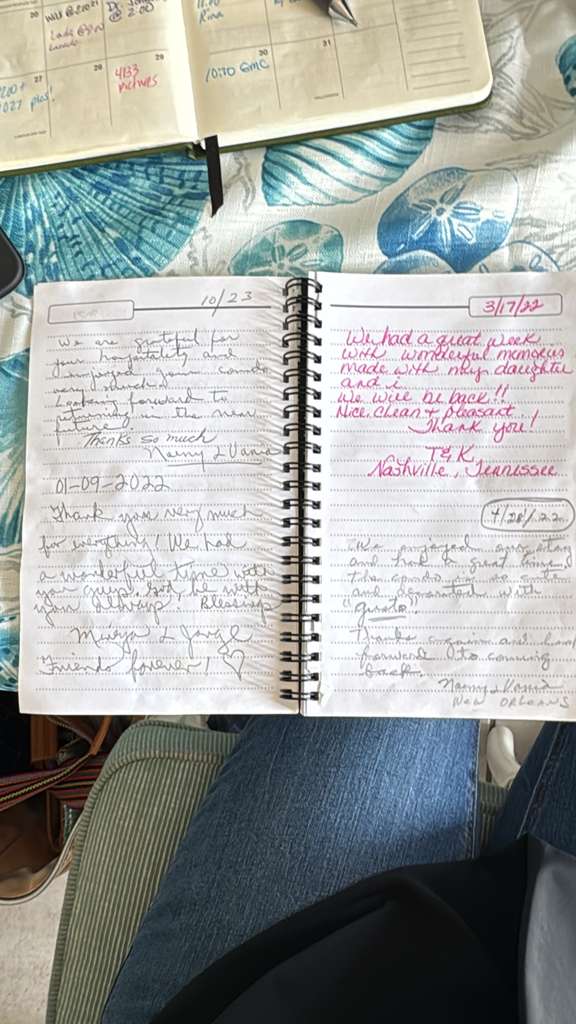 20
@ 2:00
Rina
27
28
29
4133
pictures
30
10:30 GMC
31
10/23
We are grateful for
your hospitality and
very much
Looking forward to
returning in the near
future!
Thanks so much
01-09-2022
Thank you very much
for everything! We had
a wonderful time with
you guys. God be with
you always. Blessings
Mirza & Jorge
Friends forever! ♡
3/17/22
We had a great week
with wonderful memories
made with my daughter
and i
We will be back!!
Nice, clean + pleasant
Thank you!
T&K
Nashville, Tennessee
4/28/22
We enjoyed our stay
and had a great time
the condo is
and with
Thanks again and look
forward to coming
back.
NEW ORLEANS